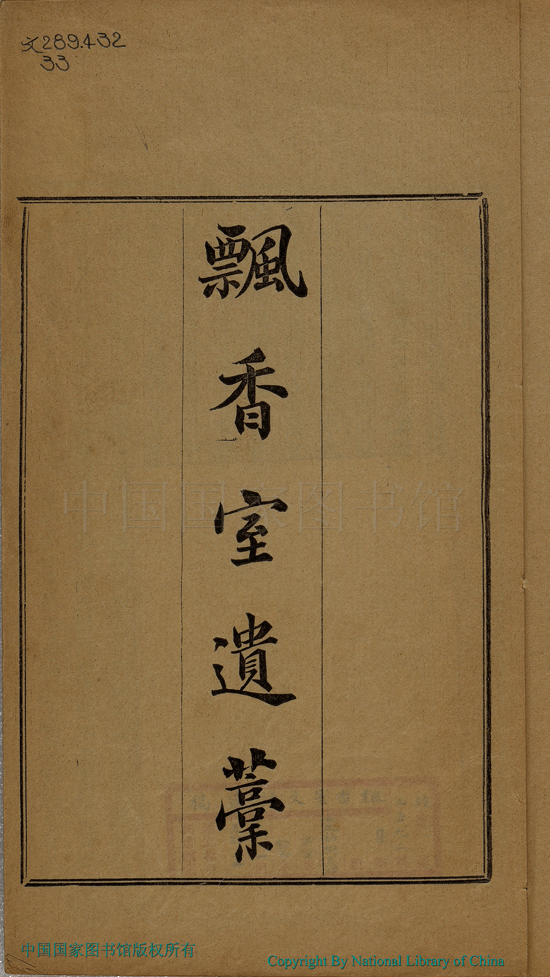 文289.432
33
飄香室遺藁
中国国家图书馆
中国国家图书馆版权所有
Copyright By National Library of China